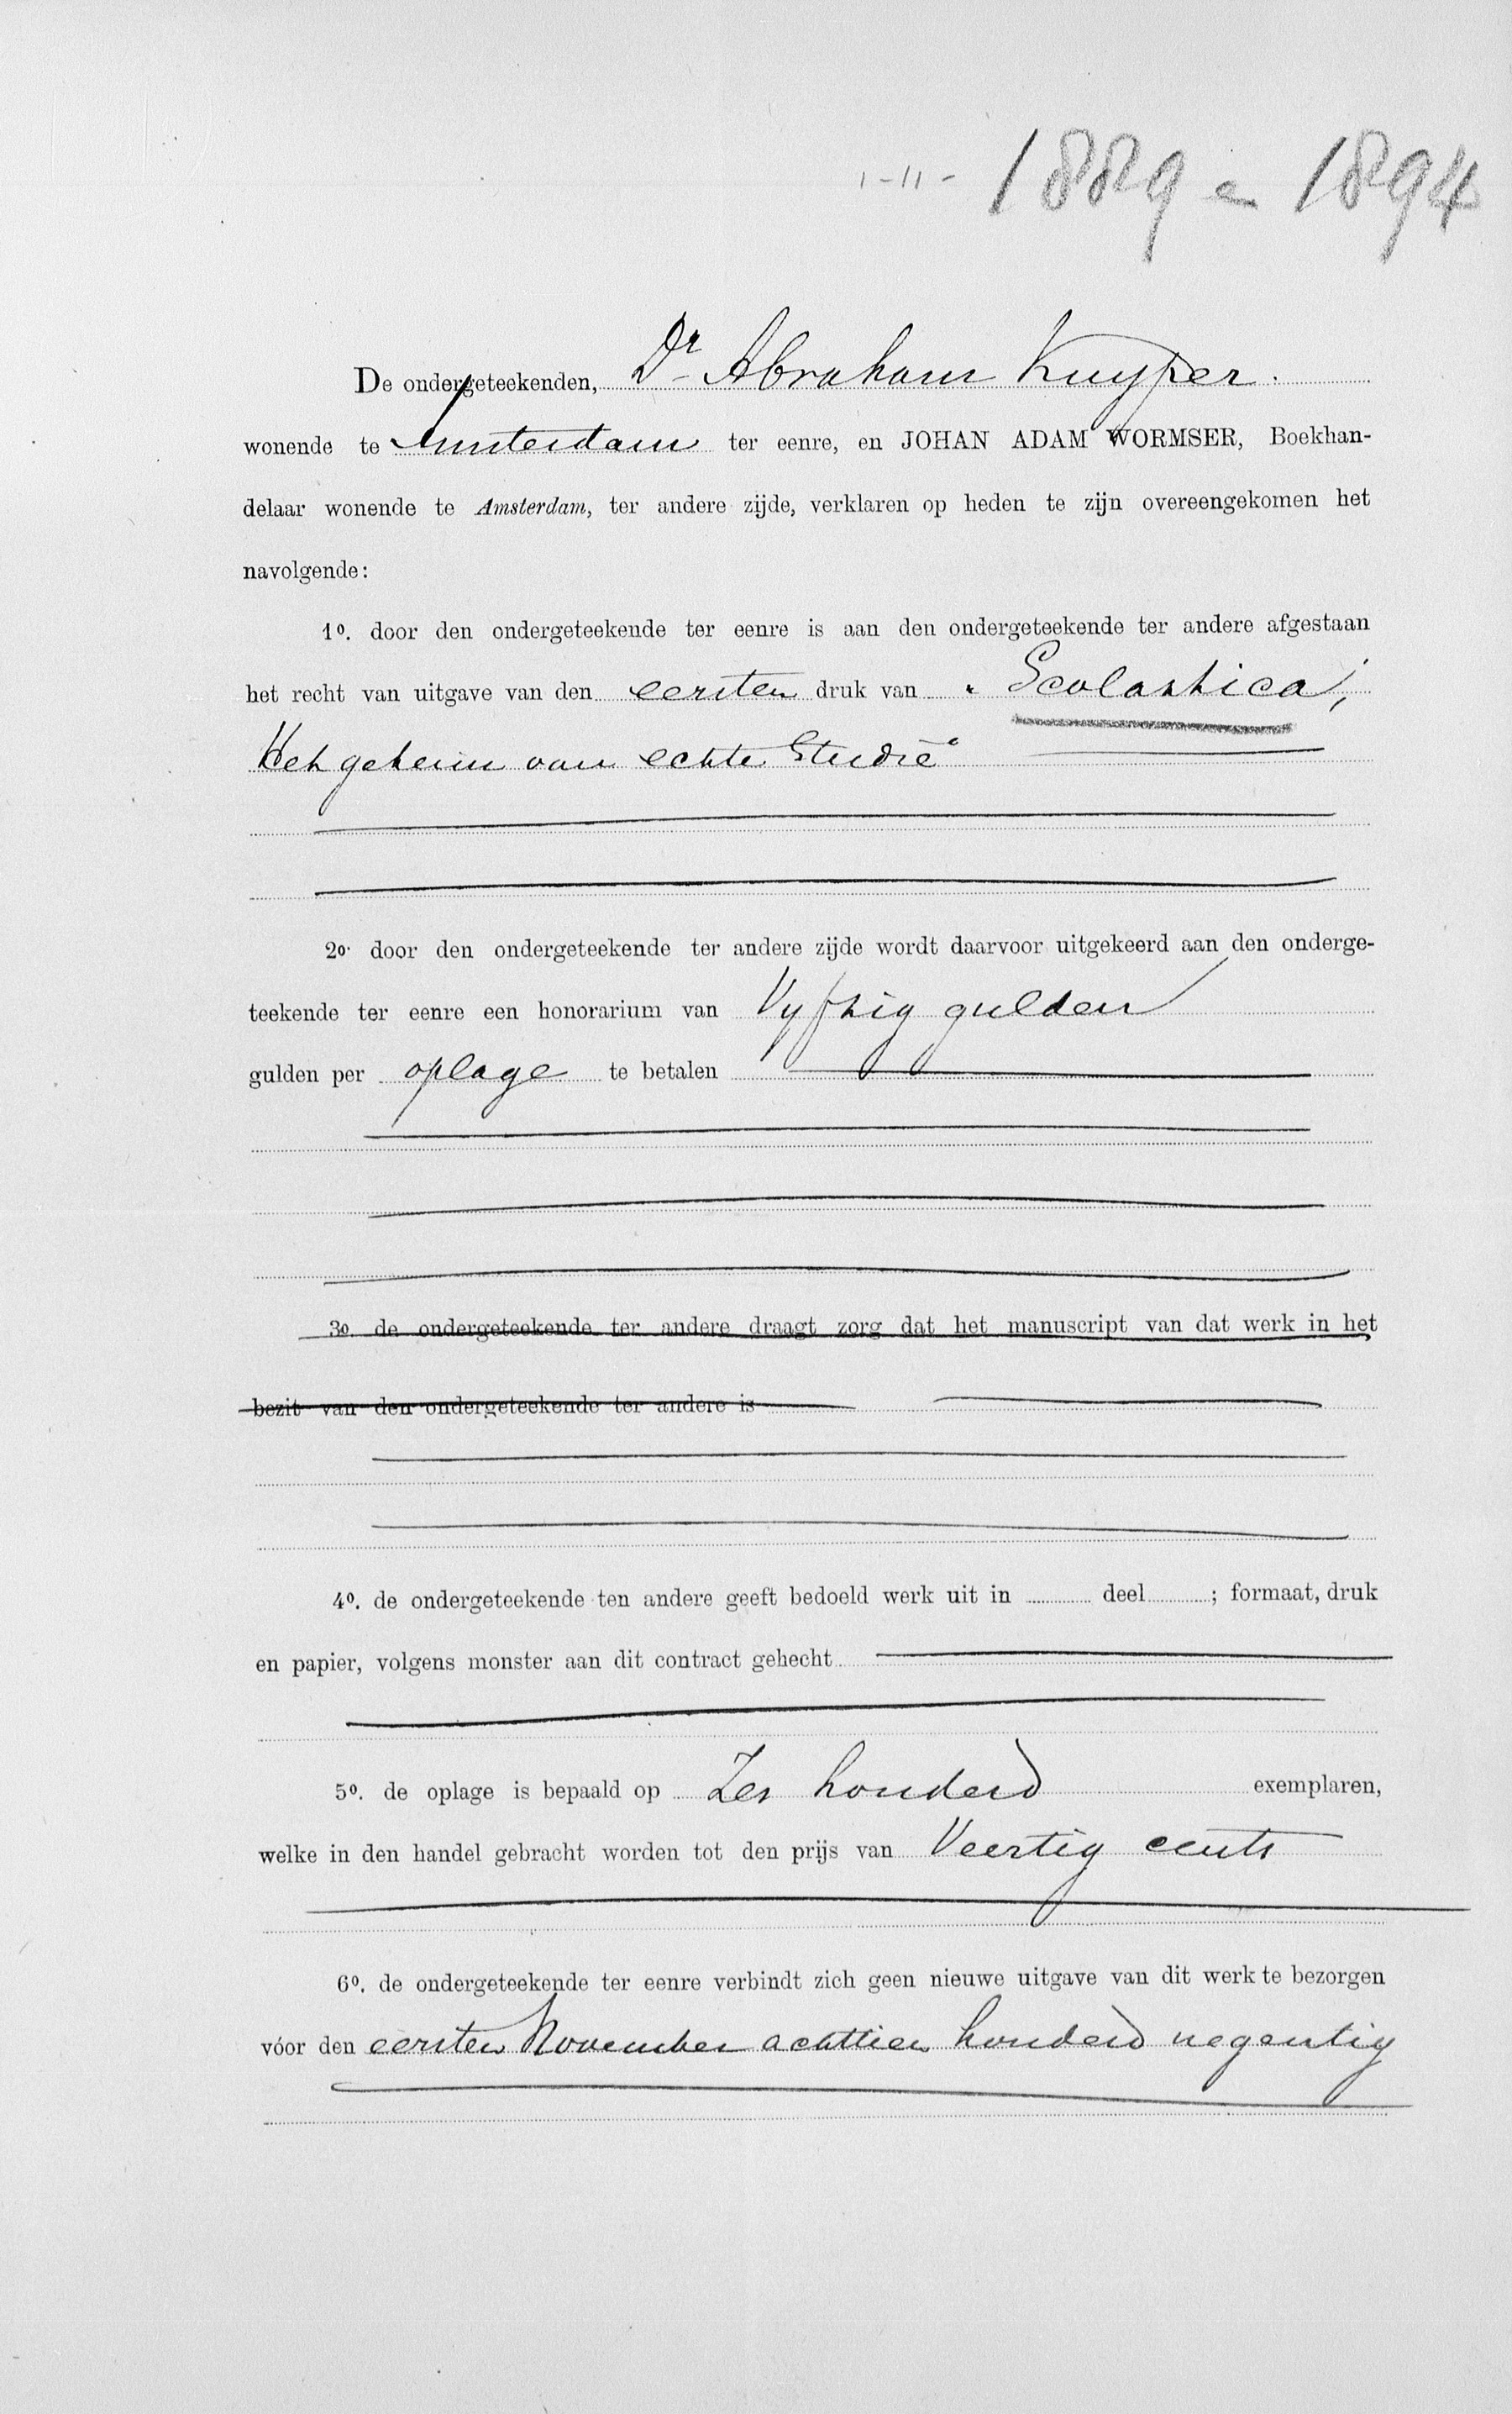 1-11- 1889 en 1894
De ondergeteekenden, Dr Abraham Kuyper.
wonende te Amsterdam ter eenre, en JOHAN ADAM WORMSER, Boekhan-
delaar wonende te Amsterdam, ter andere zijde, verklaren op heden te zijn overeengekomen het
navolgende:
1o. door den ondergeteekende ter eenre is aan den ondergeteekende ter andere afgestaan
het recht van uitgave van den eersten druk van " Scolastica,
Het geheim van echte Studie"
2o. door den ondergeteekende ter andere zijde wordt daarvoor uitgekeerd aan den onderge-
teekende ter eenre een honorarium van Vyftig gulden
gulden per oplage te betalen
3o. de ondergeteekende ter andere draagt zorg dat het manuscript van dat werk in het
bezit van den ondergeteekende ter andere is
4o. de ondergeteekende ten andere geeft bedoeld werk uit in deel ; formaat, druk
en papier, volgens monster aan dit contract gehecht
5o. de oplage is bepaald op Zes honderd exemplaren,
welke in den handel gebracht worden tot den prijs van Veertig cents
6o. de ondergeteekende ter eenre verbindt zich geen nieuwe uitgave van dit werk te bezorgen
vóor den eersten November achttien honderd negentig